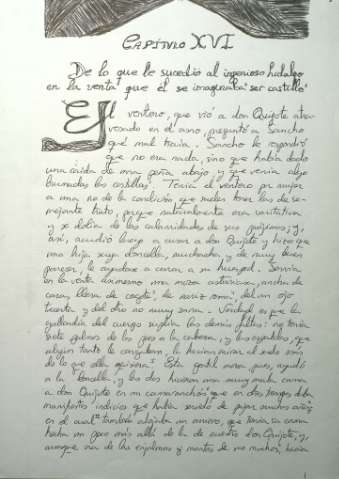 CAPÍTULO XVI
De lo que le sucedió al ingenioso hidalgo
en la venta que él se imaginaba ser castillo
El ventero, que vió a don Quijote atra
vesado en el asno, preguntó a Sancho
qué mal traía. Sancho le respondió
que no era nada, sino que había dado
una caída de una peña abajo, y que venía algo
brumadas las costillas. Tenía el ventero por mujer
a una no de la condición que suelen tener las de se-
mejante trato, porque naturalmente era caritativa
y se dolía de las calamidades de sus prójimos; y,
así, acudió luego a curar a don Quijote y hizo que
una hija suya doncella, muchacha, y de muy buen
parecer, le ayudase a curar a su huésped. Servía
en la venta asimesmo una moza asturiana, ancha de
cara, llana de cogote, de nariz roma, del un ojo
tuerta y del otro no muy sana. Verdad es que la
gallardía del cuerpo suplía las demás faltas: no tenía
siete palmos de los pies a la cabeza, y las espaldas, que
algún tanto le cargaban, la hacían mirar al suelo más
de lo que ella quisiera. Esta gentil moza, pues, ayudó
a la doncella, y las dos hicieron una muy mala cama
a don Quijote en un camaranchón que en otros tiempos daba
manifiestos indicios que había servido de pajar muchos años;
en el cual también alojaba un arriero, que tenía su cama
hecha un poco más allá de la de nuestro don Quijote, y,
aunque era de las enjalmas y mantas de sus machos, hacía